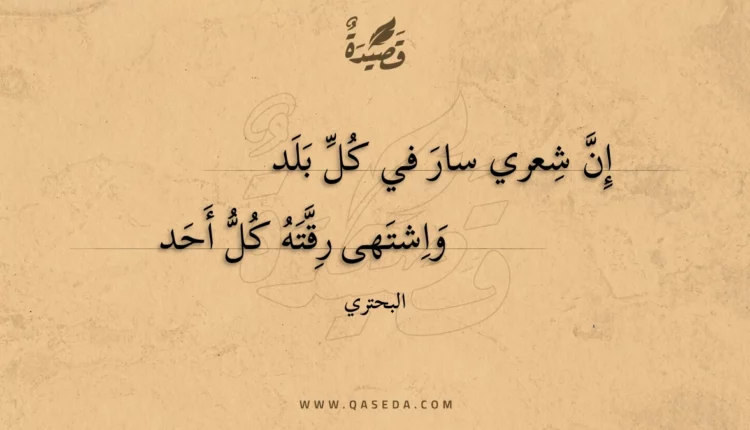 قَصِيدَةٌ
إِنَّ شِعري سارَ في كُلِّ بَلَد
وَاِشتَهى رِقَّتَهُ كُلُّ أَحَد
البحتري
WWW.QASEDA.COM